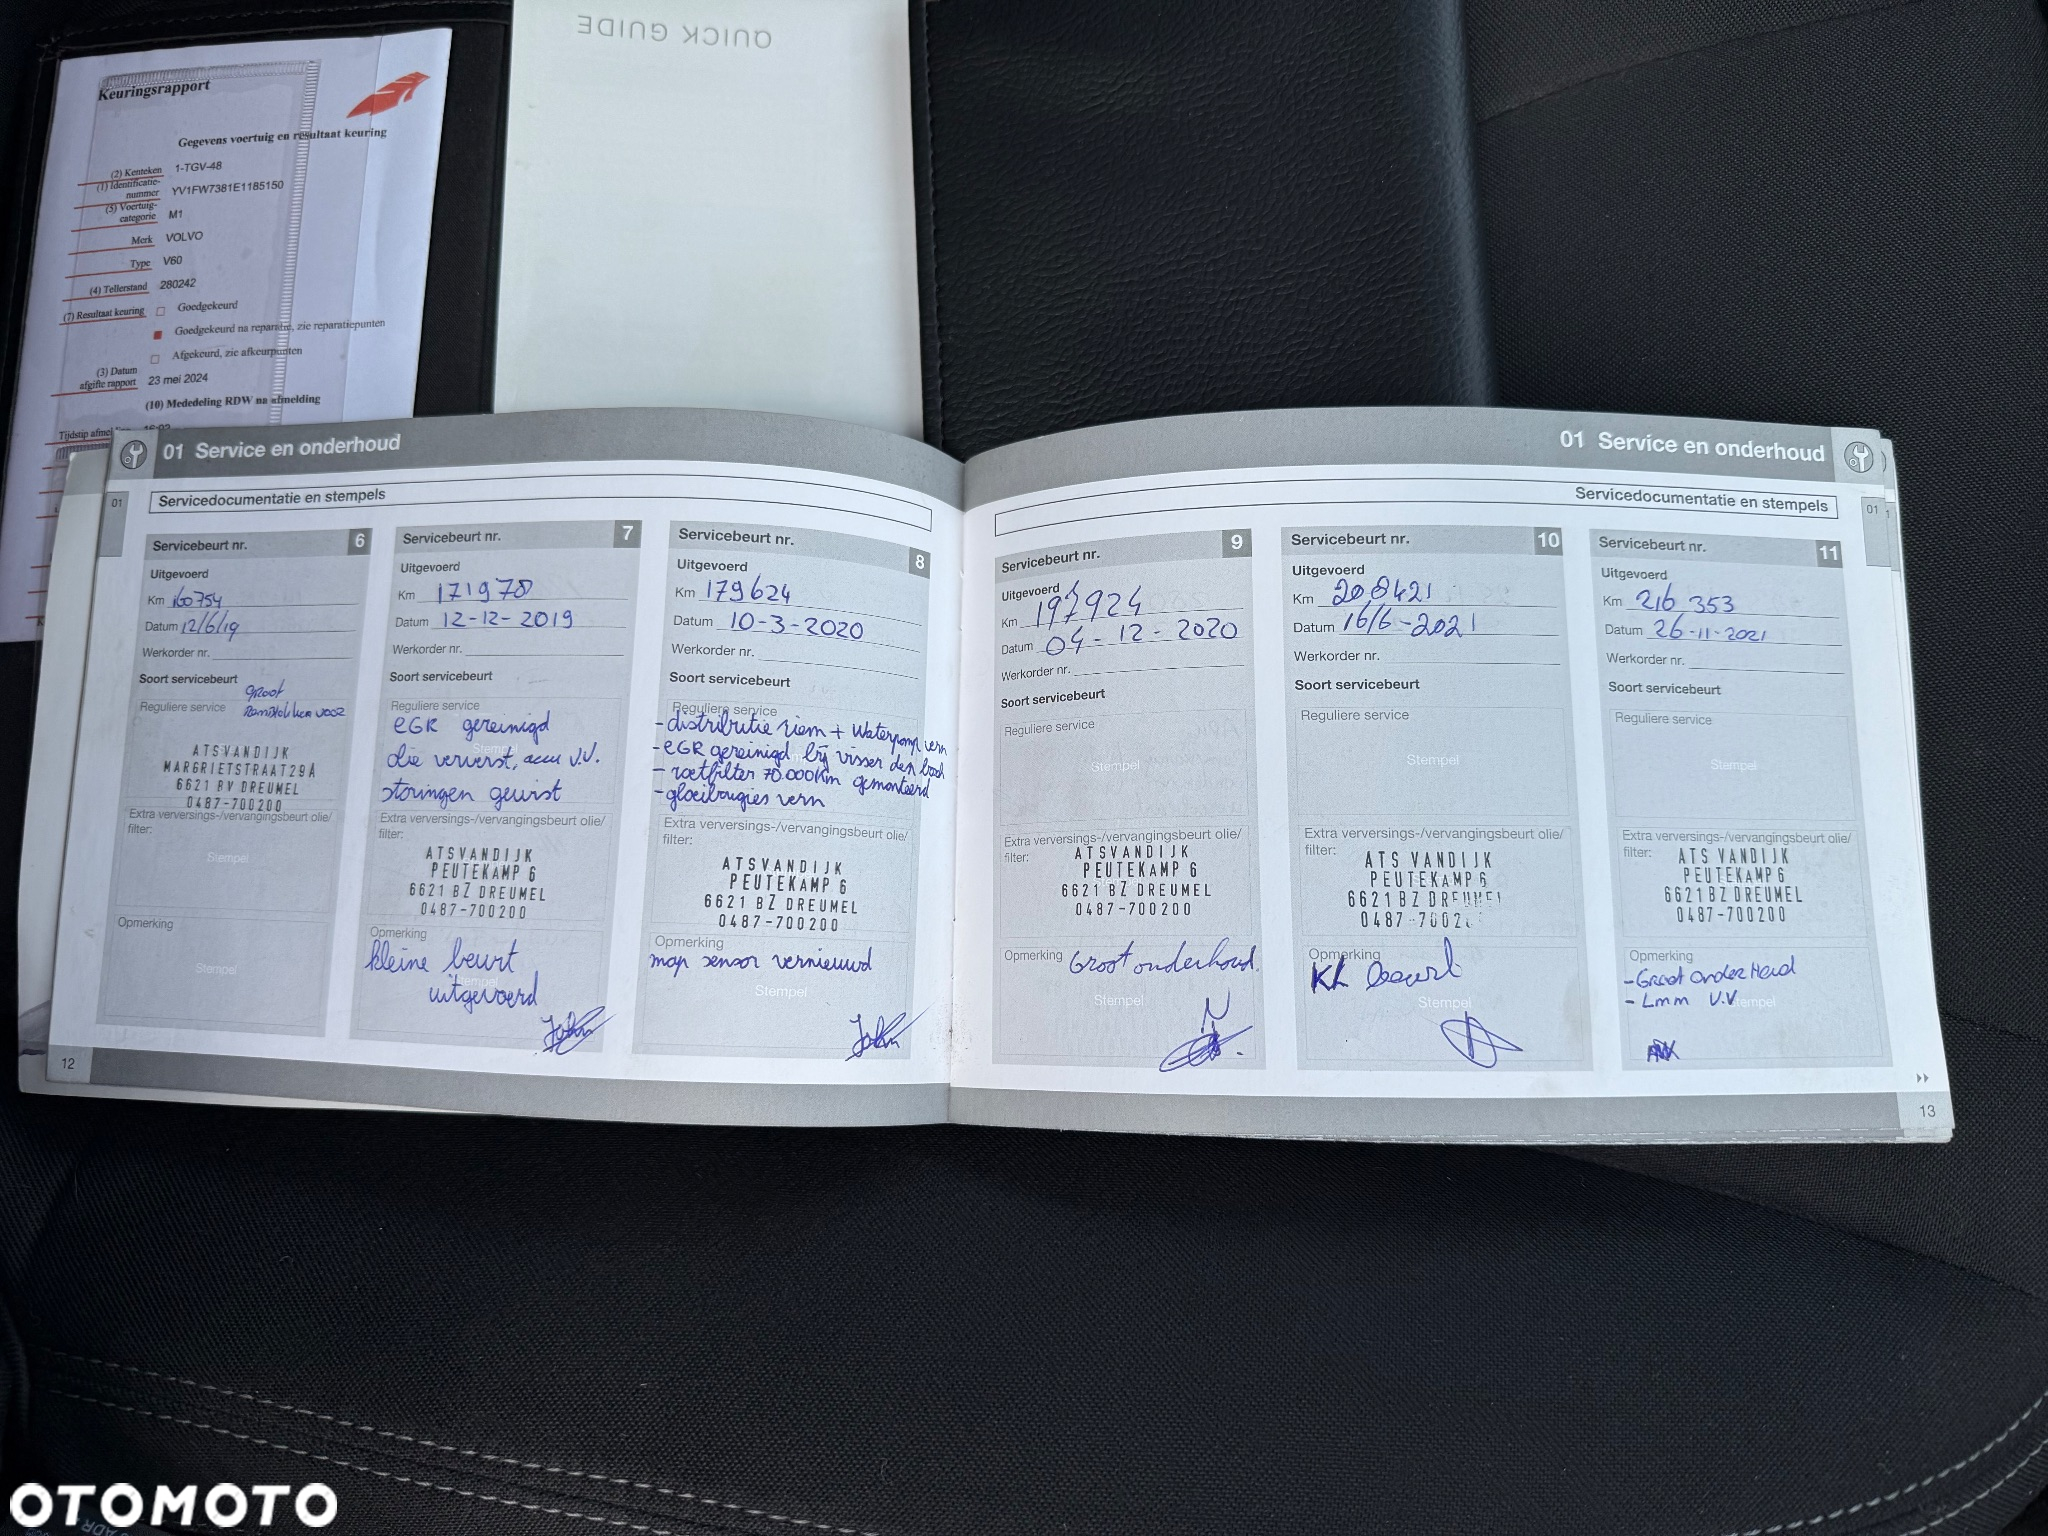 QUICK GUIDE
Keuringsrapport
Gegevens voertuig en resultaat keuring
(2) Kenteken 1-TGV-48
(1) Identificatie-
nummer YV1FW7381E1185150
(5) Voertuig-
categorie M1
Merk VOLVO
Type V60
(4) Tellerstand 280242
(7) Resultaat keuring Goedgekeurd
Goedgekeurd na reparatie, zie reparatiepunten
Afgekeurd, zie afkeurpunten
(3) Datum
afgifte rapport 23 mei 2024
(10) Mededeling RDW na afmelding
Tijdstip
01 Service en onderhoud
01
Servicedocumentatie en stempels
Servicebeurt nr. 6
Uitgevoerd
Km 160754
Datum 12/6/19
Werkorder nr.
Soort servicebeurt
Groot
Reguliere service Remblokken voor
ATSVANDIJK
MARGRIETSTRAAT29A
6621 BV DREUMEL
0487-700200
Extra verversings-/vervangingsbeurt olie/
filter:
Stempel
Opmerking
Stempel
12
Servicebeurt nr. 7
Uitgevoerd
Km 171978
Datum 12-12-2019
Werkorder nr.
Soort servicebeurt
Reguliere service
EGR gereinigd
Stempel
olie ververst, accu v.v.
storingen gewist
Extra verversings-/vervangingsbeurt olie/
filter:
ATSVANDIJK
PEUTEKAMP 6
6621 BZ DREUMEL
0487-700200
Opmerking
kleine beurt
Stempel
uitgevoerd
Servicebeurt nr. 8
Uitgevoerd
Km 179624
Datum 10-3-2020
Werkorder nr.
Soort servicebeurt
Reguliere service
- distributie riem + Waterpomp vern
- EGR gereinigd bij visser den
- roetfilter 70.000km gemonteerd
- gloeibougies vern
Extra verversings-/vervangingsbeurt olie/
filter:
ATSVANDIJK
PEUTEKAMP 6
6621 BZ DREUMEL
0487-700200
Opmerking
map sensor vernieuwd
Stempel
01 Service en onderhoud
Servicedocumentatie en stempels
01
Servicebeurt nr. 9
Uitgevoerd
Km 197924
Datum 04-12-2020
Werkorder nr.
Soort servicebeurt
Reguliere service
Stempel
Extra verversings-/vervangingsbeurt olie/
filter:
ATSVANDIJK
PEUTEKAMP 6
6621 BZ DREUMEL
0487-700200
Opmerking Groot onderhoud.
Stempel
Servicebeurt nr. 10
Uitgevoerd
Km 208421
Datum 16/6-2021
Werkorder nr.
Soort servicebeurt
Reguliere service
Stempel
Extra verversings-/vervangingsbeurt olie/
filter:
ATS VANDIJK
PEUTEKAMP 6
6621 BZ DREUMEL
0487-70020
Opmerking
KL beurt
Stempel
Servicebeurt nr. 11
Uitgevoerd
Km 216 353
Datum 26-11-2021
Werkorder nr.
Soort servicebeurt
Reguliere service
Stempel
Extra verversings-/vervangingsbeurt olie/
filter:
ATS VANDIJK
PEUTEKAMP 6
6621 BZ DREUMEL
0487-700200
Opmerking
- Groot onderHoud
- Lmm V.V
Stempel
13
OTOMOTO